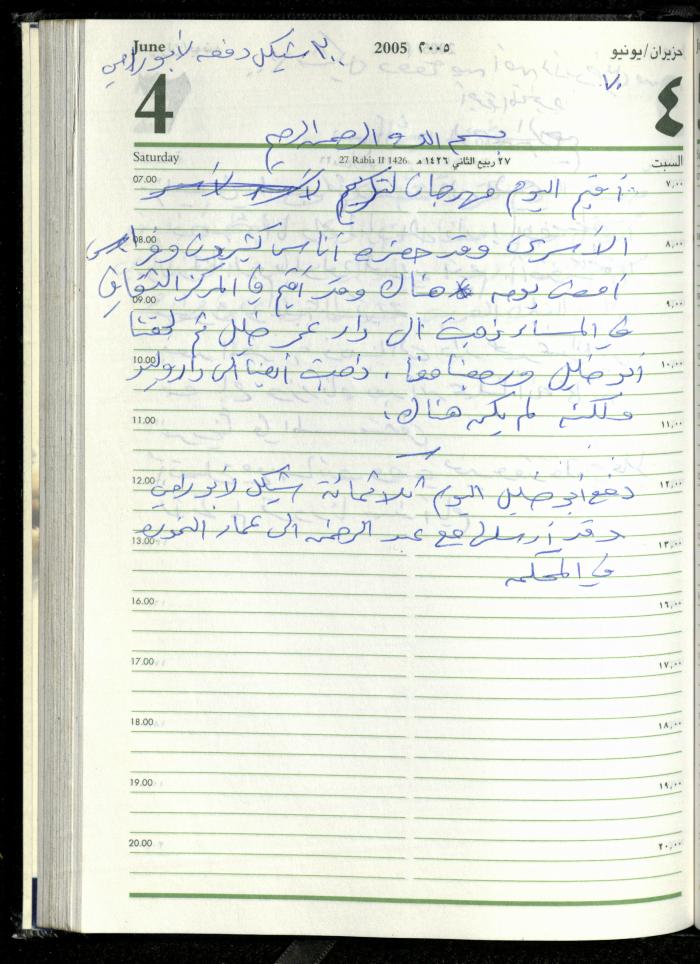 June 2005 ٢٠٠٥ حزيران/يونيو
٣٠٠ شيكل دفعه لأبو رامي
٧٠
4 ٤
بسم الله الرحمن الرحيم
Saturday 27 Rabia II 1426 ٢٧ ربيع الثاني ١٤٢٦ هـ السبت
07.00 أقيم اليوم مهرجان لتكريم ٧,٠٠
08.00 الأسرى وقد حضره أناس كثيرون وفراس ٨,٠٠
أمضى يومه هناك وقد أقيم في المركز الثقافي
09.00 في المساء ذهبت الى دار عمر خليل ثم لحقنا ٩,٠٠
10.00 أبو خليل ورجعنا معا، ذهبت أيضا الى دار وليد ١٠,٠٠
11.00 ولكنه لم يكن هناك. ١١,٠٠
12.00 دفع أبو خليل اليوم ثلاثمائة شيكل لأبو رامي ١٢,٠٠
13.00 وقد أرسلها مع عبد الرحمن الى عمار ١٣,٠٠
في المحكمه
16.00 ١٦,٠٠
17.00 ١٧,٠٠
18.00 ١٨,٠٠
19.00 ١٩,٠٠
20.00 ٢٠,٠٠